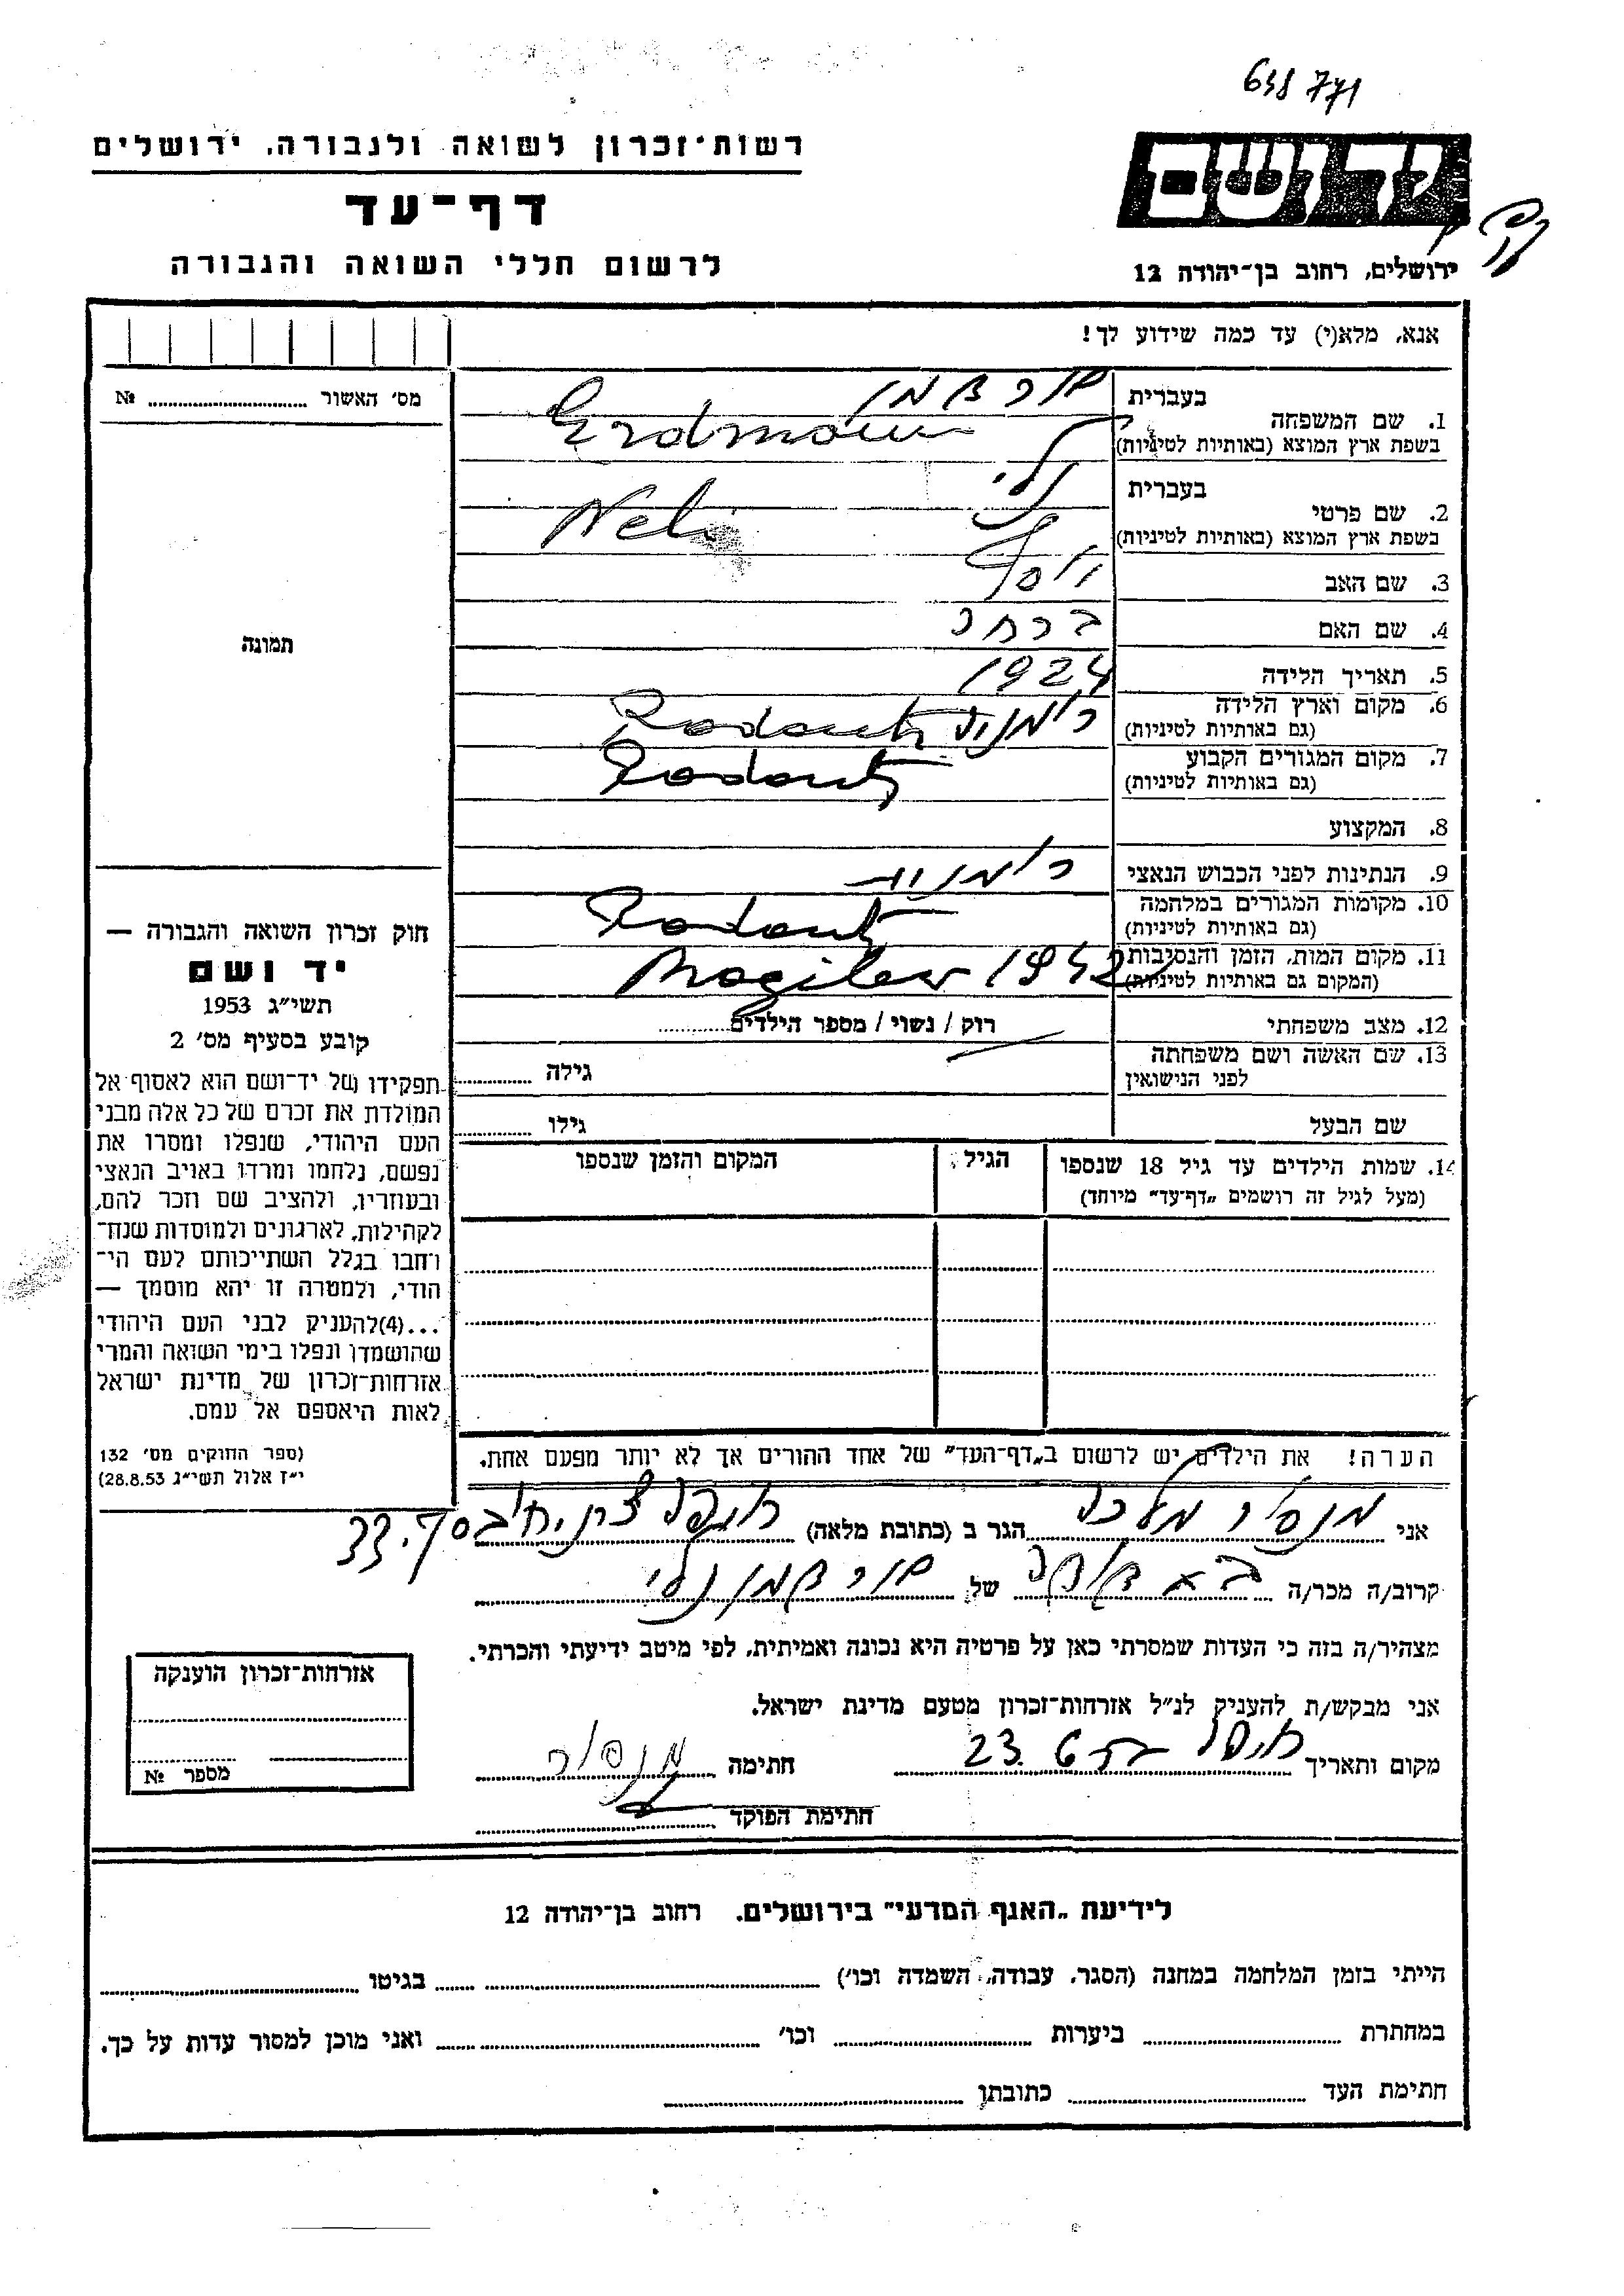 638771
רשות־זכרון לשואה ולגבורה. ירושלים
יד ושם
דף־עד
לרשום חללי השואה והגבורה
ירושלים, רחוב בן־יהודה 12
אנא, מלא(י) עד כמה שידוע לך!
מס׳ האשור № 
בעברית
1. שם המשפחה
בשפת ארץ המוצא (באותיות לטיניות) Erdman
בעברית נלי
2. שם פרטי
בשפת ארץ המוצא (באותיות לטיניות) Neli
3. שם האב יוסף
4. שם האם ברחה
5. תאריך הלידה 1924
6. מקום וארץ הלידה רומניה Radautz
(גם באותיות לטיניות)
7. מקום המגורים הקבוע Radautz
(גם באותיות לטיניות)
8. המקצוע
9. הנתינות לפני הכבוש הנאצי רומנית
10. מקומות המגורים במלחמה Radautz
(גם באותיות לטיניות)
11. מקום המות, הזמן והנסיבות Mogilew 1942
(המקום גם באותיות לטיניות)
12. מצב משפחתי רוק / נשוי / מספר הילדים
13. שם האשה ושם משפחתה
לפני הנישואין גילה
שם הבעל גילו
14. שמות הילדים עד גיל 18 שנספו הגיל המקום והזמן שנספו
(מעל לגיל זה רושמים „דף־עד” מיוחד)
הערה! את הילדים יש לרשום ב„דף־העד” של אחד ההורים אך לא יותר מפעם אחת.
תמונה
חוק זכרון השואה והגבורה —
יד ושם
תשי״ג 1953
קובע בסעיף מס׳ 2
תפקידו של יד־ושם הוא לאסוף אל
המולדת את זכרם של כל אלה מבני
העם היהודי, שנפלו ומסרו את
נפשם, נלחמו ומרדו באויב הנאצי
ובעוזריו, ולהציב שם וזכר להם,
לקהילות, לארגונים ולמוסדות שנח־
רחבו בגלל השתייכותם לעם הי־
הודי, ולמטרה זו יהא מוסמך —
...(4)להעניק לבני העם היהודי
שהושמדו ונפלו בימי השואה והמרי
אזרחות־זכרון של מדינת ישראל
לאות היאספם אל עמם.
(ספר החוקים מס׳ 132
י״ז אלול תשי״ג 28.8.53)
אני הגר ב (כתובת מלאה) 33
קרוב/ה מכר/ה של נלי
מצהיר/ה בזה כי העדות שמסרתי כאן על פרטיה היא נכונה ואמיתית, לפי מיטב ידיעתי והכרתי.
אני מבקש/ת להעניק לנ״ל אזרחות־זכרון מטעם מדינת ישראל.
מקום ותאריך 23. חתימה
חתימת הפוקד
אזרחות־זכרון הוענקה
מספר №
לידיעת „האגף המדעי” בירושלים. רחוב בן־יהודה 12
הייתי בזמן המלחמה במחנה (הסגר, עבודה, השמדה וכו׳) בגיטו
במחתרת ביערות וכו׳ ואני מוכן למסור עדות על כך.
חתימת העד כתובתו